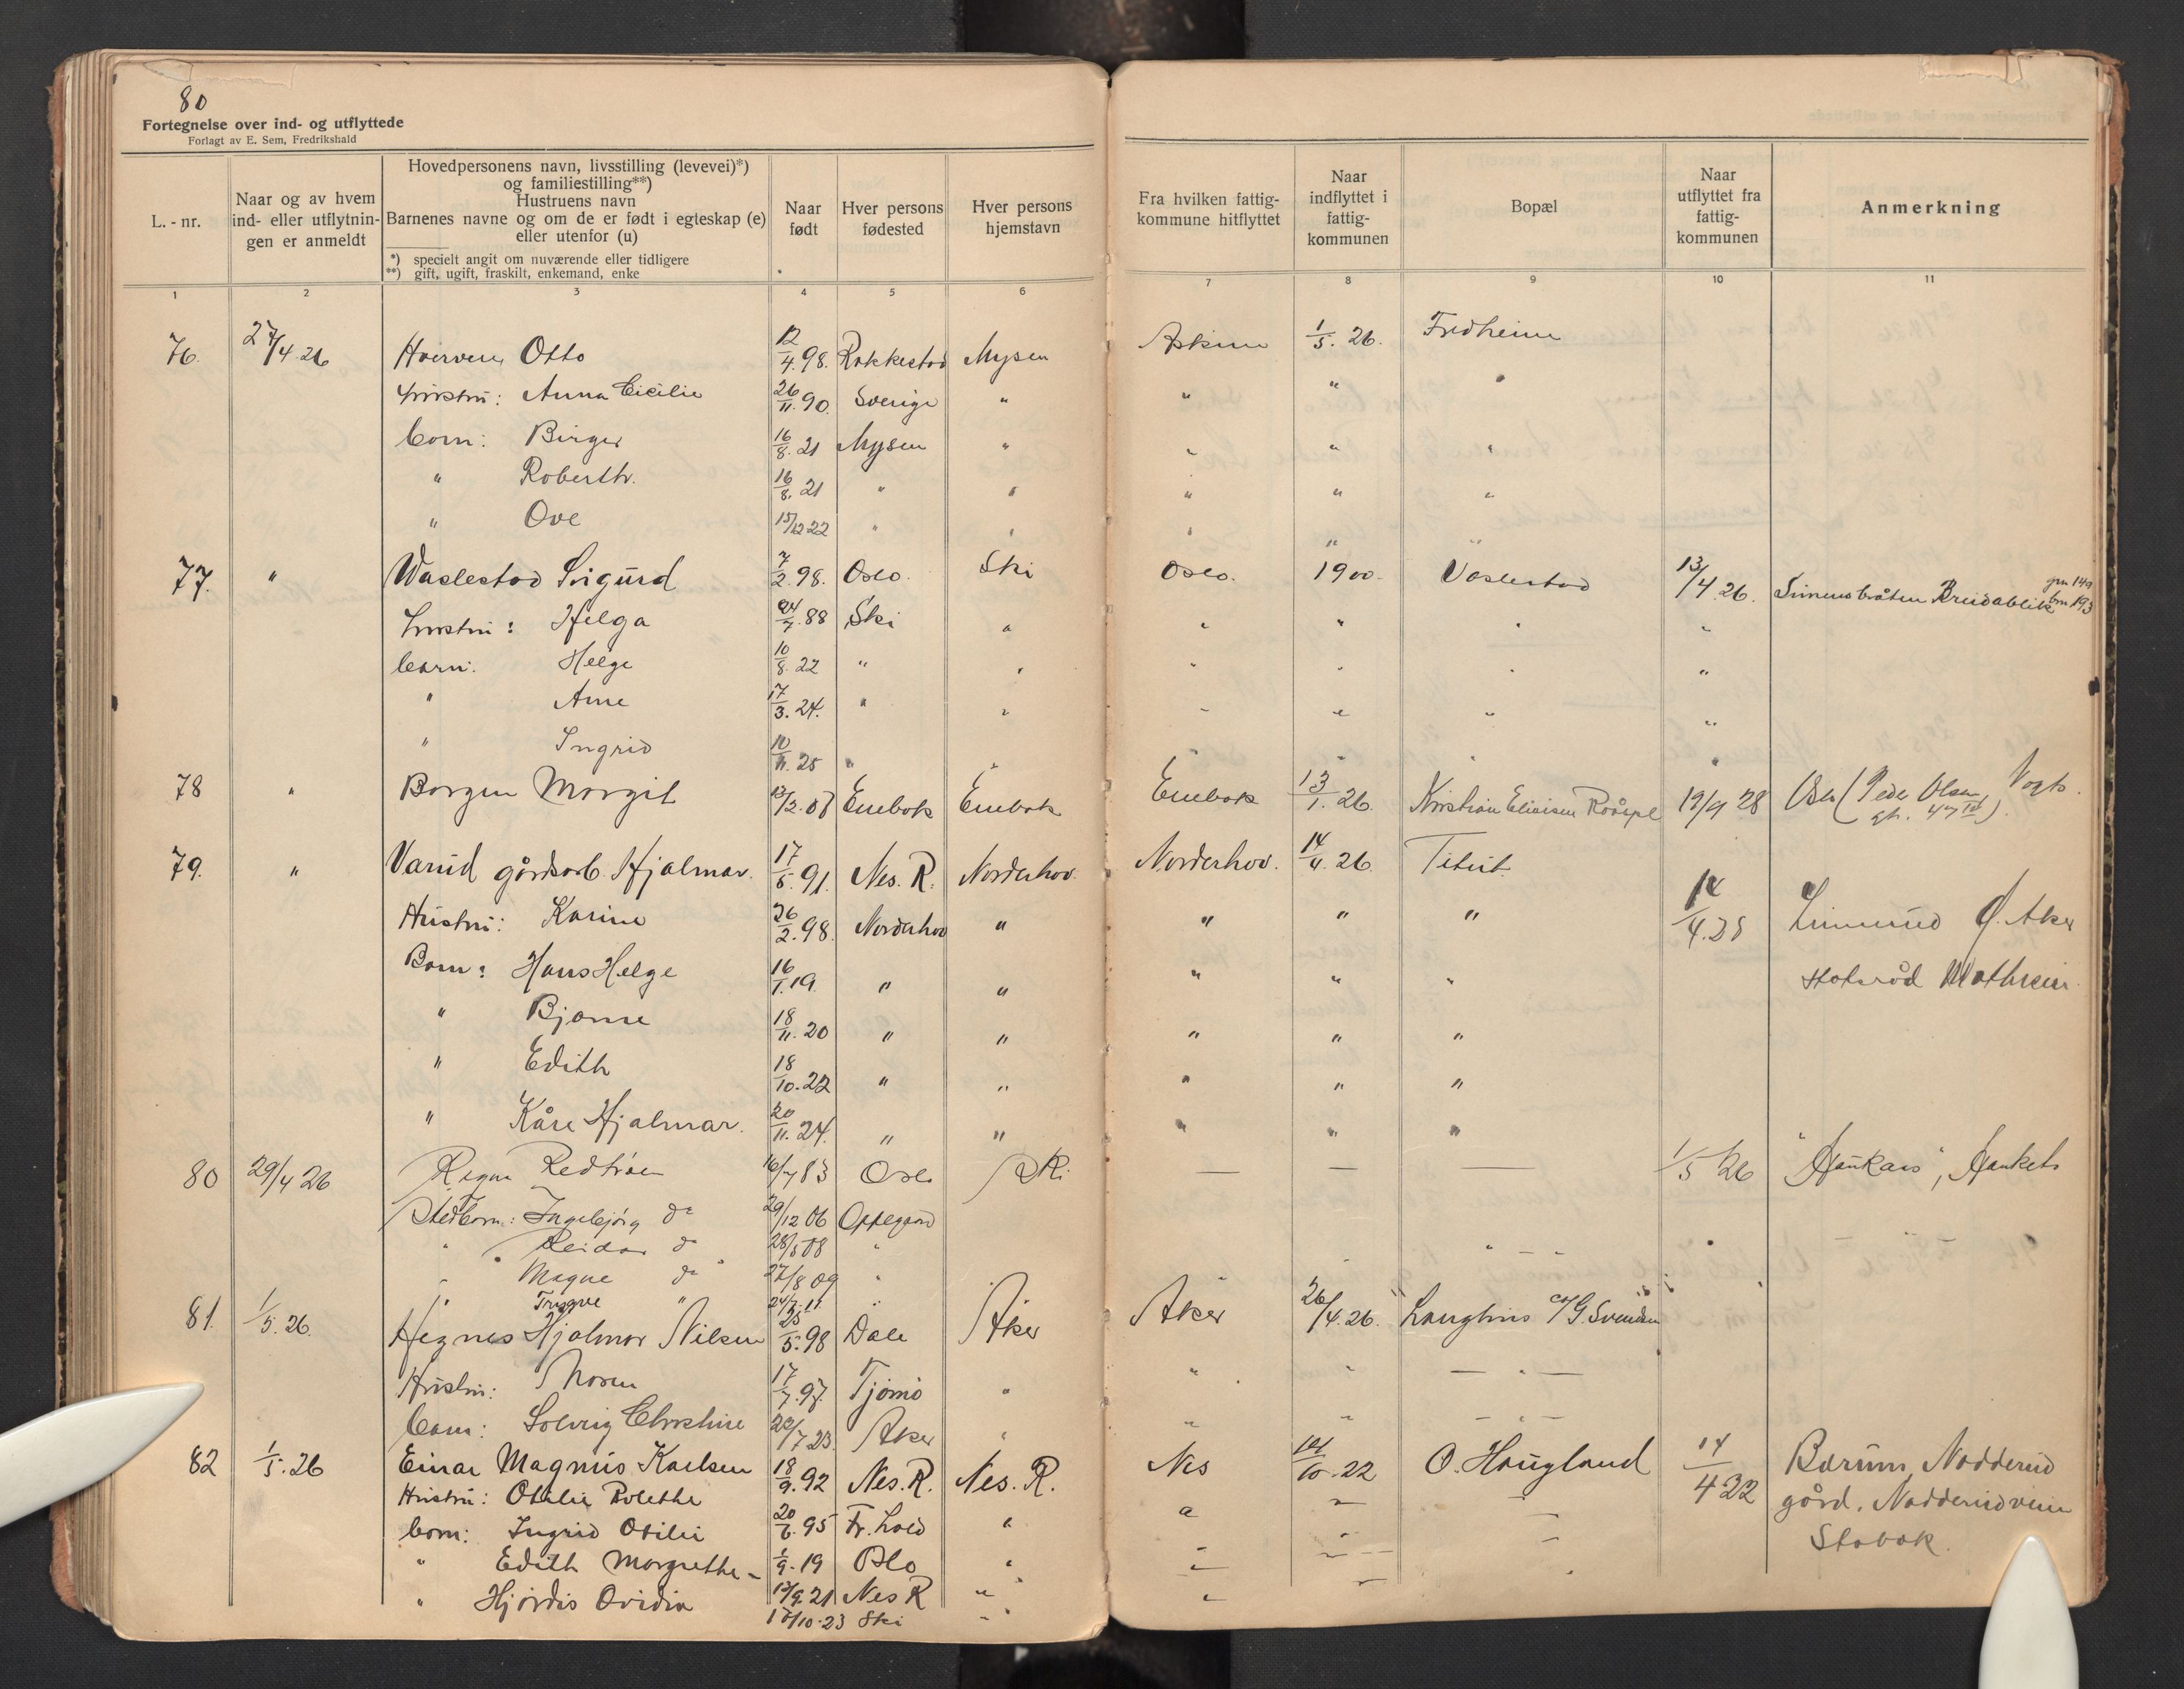 80
Fortegnelse over ind- og utflyttede
Forlagt av E. Sem, Fredrikshald
L. - nr.
Naar og av hvem ind- eller utflytningen er anmeldt
Hovedpersonens navn, livsstilling (levevei)*)
og familiestilling**)
Hustruens navn
Barnenes navne og om de er født i egteskap (e)
eller utenfor (u)
*) specielt angit om nuværende eller tidligere
**) gift, ugift, fraskilt, enkemand, enke
Naar født
Hver persons fødested
Hver persons hjemstavn
Fra hvilken fattigkommune hitflyttet
Naar indflyttet i fattigkommunen
Bopæl
Naar utflyttet fra fattigkommunen
Anmerkning
1 2 3 4 5 6 7 8 9 10 11
76. 27/4 26 Otto 12/4.98. Rakkestad Mysen Askim 1/5. 26. Fredheim
Hustru: Anna Cicilie 26/11.90. Sverige " " " "
Barn: Birger 16/8.21 Mysen " " " "
" Roberth. 16/8.21 " " " " "
" Ove 15/12 22 " " " " "
77. " Waslestad Sigurd 7/2.98. Oslo. Ski Oslo. 1900. Vaslestad 13/4.26. Simensbråten Breidablik gn 149 bn 193
Hustru: Helga 24/7.88 Ski " " " " "
barn: Helge 10/8.22 " " " " " "
" Arne 17/3.24. " " " " " "
" Ingrid 10/11.25 " " " " " "
78 " Borgen Margit 13/2.07 Enebak Enebak Enebak 13/1.26. Kristian Eliaisen 19/9 28 Oslo (Peder Olsen Vogts gt. 47 IV).
79. " Varud gårdsarb. Hjalmar. 17/5.91. Nes. R. Norderhov. Norderhov. 14/4.26. 14/4.28
Hustru: Karine 26/2.98. Norderhov " " " " Ø. Aker
Barn: Hans Helge 16/1.19. " " " " " Statsråd
" Bjarne 18/11.20 " " " " "
" Edith 18/10.22 " " " " "
" Kåre Hjalmar. 20/11.24. " " " " "
80 29/4 26 16/7 83 Oslo Ski — — — 1/5 26 "Haukaas", Hauketo
Stedbarn: Ingebjørg do 29/12 06 Oppegård
" Reidar do 28/5 08 "
" Magne do 27/8 09 "
" Trygve " 24/2.11 "
81. 1/5.26. Hegnes Hjalmar Nilsen 25/5.98 Dale Aker Aker 26/4.26. Langhus c/o G. Svendsen
Hustru: Thora 17/7.97. Tjømø " " " — " —
barn: Solveig Christine 20/7 23. Aker " " " — " —
82 1/5.26 Einar Magnus Karlsen 18/9.92 Nes. R. Nes. R. Nes 14/10.22 O. Haugland 14/4 22 Bærum, Nadderud
Hustru: Otilie Bolethe 20/6.95 Fr. hald " " gård. Nadderudveien
barn: Ingrid Otilie 1/9.19 Oslo " Stabæk.
" Edith Margrethe 12/9.21 Nes R "
" Hjørdis Ovidia 17/10.23 Ski "